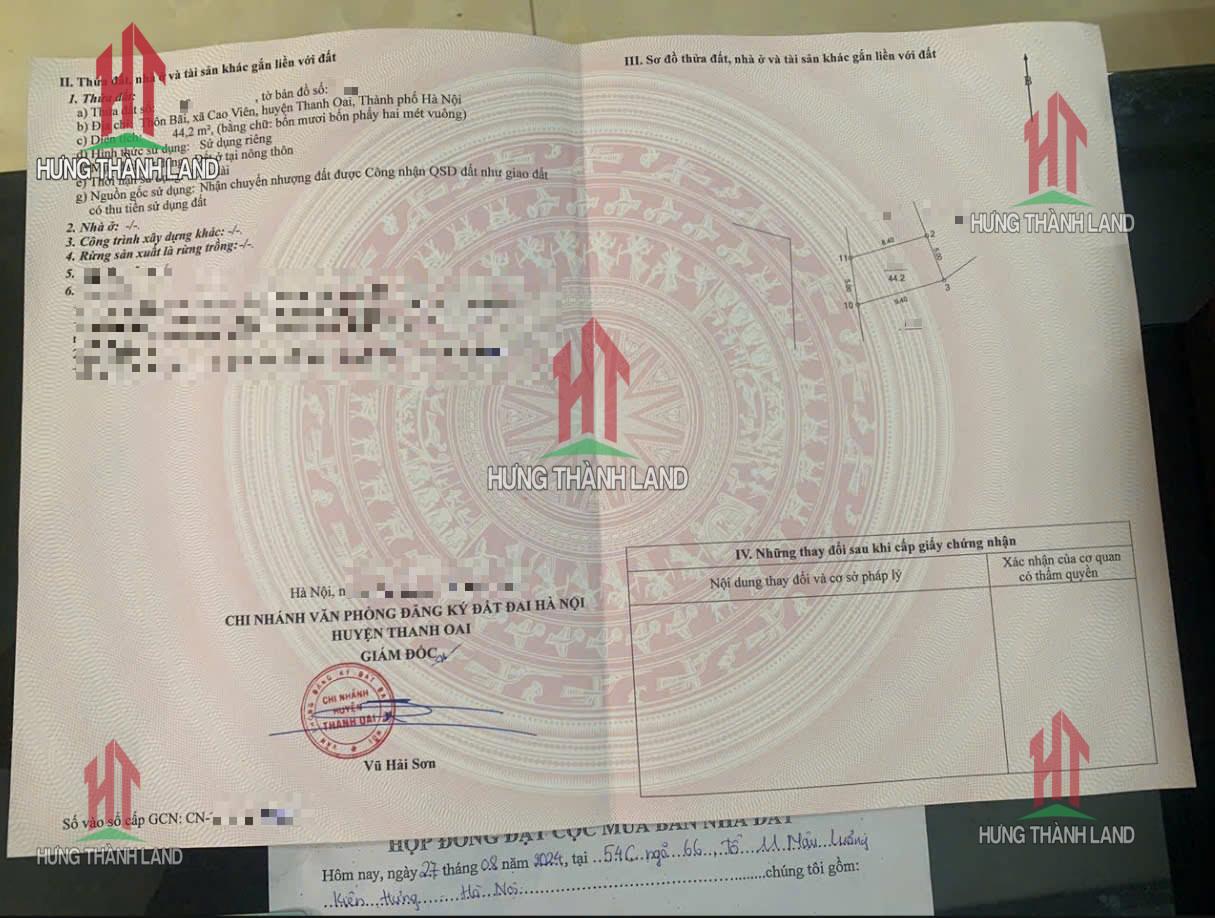 II. Thửa đất, nhà ở và tài sản khác gắn liền với đất
1. Thửa đất:
a) Thửa đất số: , tờ bản đồ số:
b) Địa chỉ: Thôn Bãi, xã Cao Viên, huyện Thanh Oai, Thành phố Hà Nội
c) Diện tích: 44,2 m², (bằng chữ: bốn mươi bốn phẩy hai mét vuông)
d) Hình thức sử dụng: Sử dụng riêng
ở tại nông thôn
e) Thời hạn
g) Nguồn gốc sử dụng: Nhận chuyển nhượng đất được Công nhận QSD đất như giao đất
có thu tiền sử dụng đất
2. Nhà ở: -/-.
3. Công trình xây dựng khác: -/-.
4. Rừng sản xuất là rừng trồng:-/-.
5.
6.
Hà Nội, n
CHI NHÁNH VĂN PHÒNG ĐĂNG KÝ ĐẤT ĐAI HÀ NỘI
HUYỆN THANH OAI
GIÁM ĐỐC
CHI NHÁNH
HUYỆN
THANH OAI
Vũ Hải Sơn
Số vào sổ cấp GCN: CN-
III. Sơ đồ thửa đất, nhà ở và tài sản khác gắn liền với đất
B
11
8.40
2
5.00
44.2
5.00
10
9.40
3
IV. Những thay đổi sau khi cấp giấy chứng nhận
Nội dung thay đổi và cơ sở pháp lý
Xác nhận của cơ quan
có thẩm quyền
HỢP ĐỒNG ĐẶT CỌC MUA BÁN NHÀ ĐẤT
Hôm nay, ngày 27 tháng 08 năm 2024, tại ..54C..ngõ..66..,Tổ..11 Mậu Lương
..Kiến..Hưng........Hà Nội...............chúng tôi gồm:
HT
HƯNG THÀNH LAND
HT
HƯNG THÀNH LAND
HT
HƯNG THÀNH LAND
HT
HƯNG THÀNH LAND
HT
HƯNG THÀNH LAND